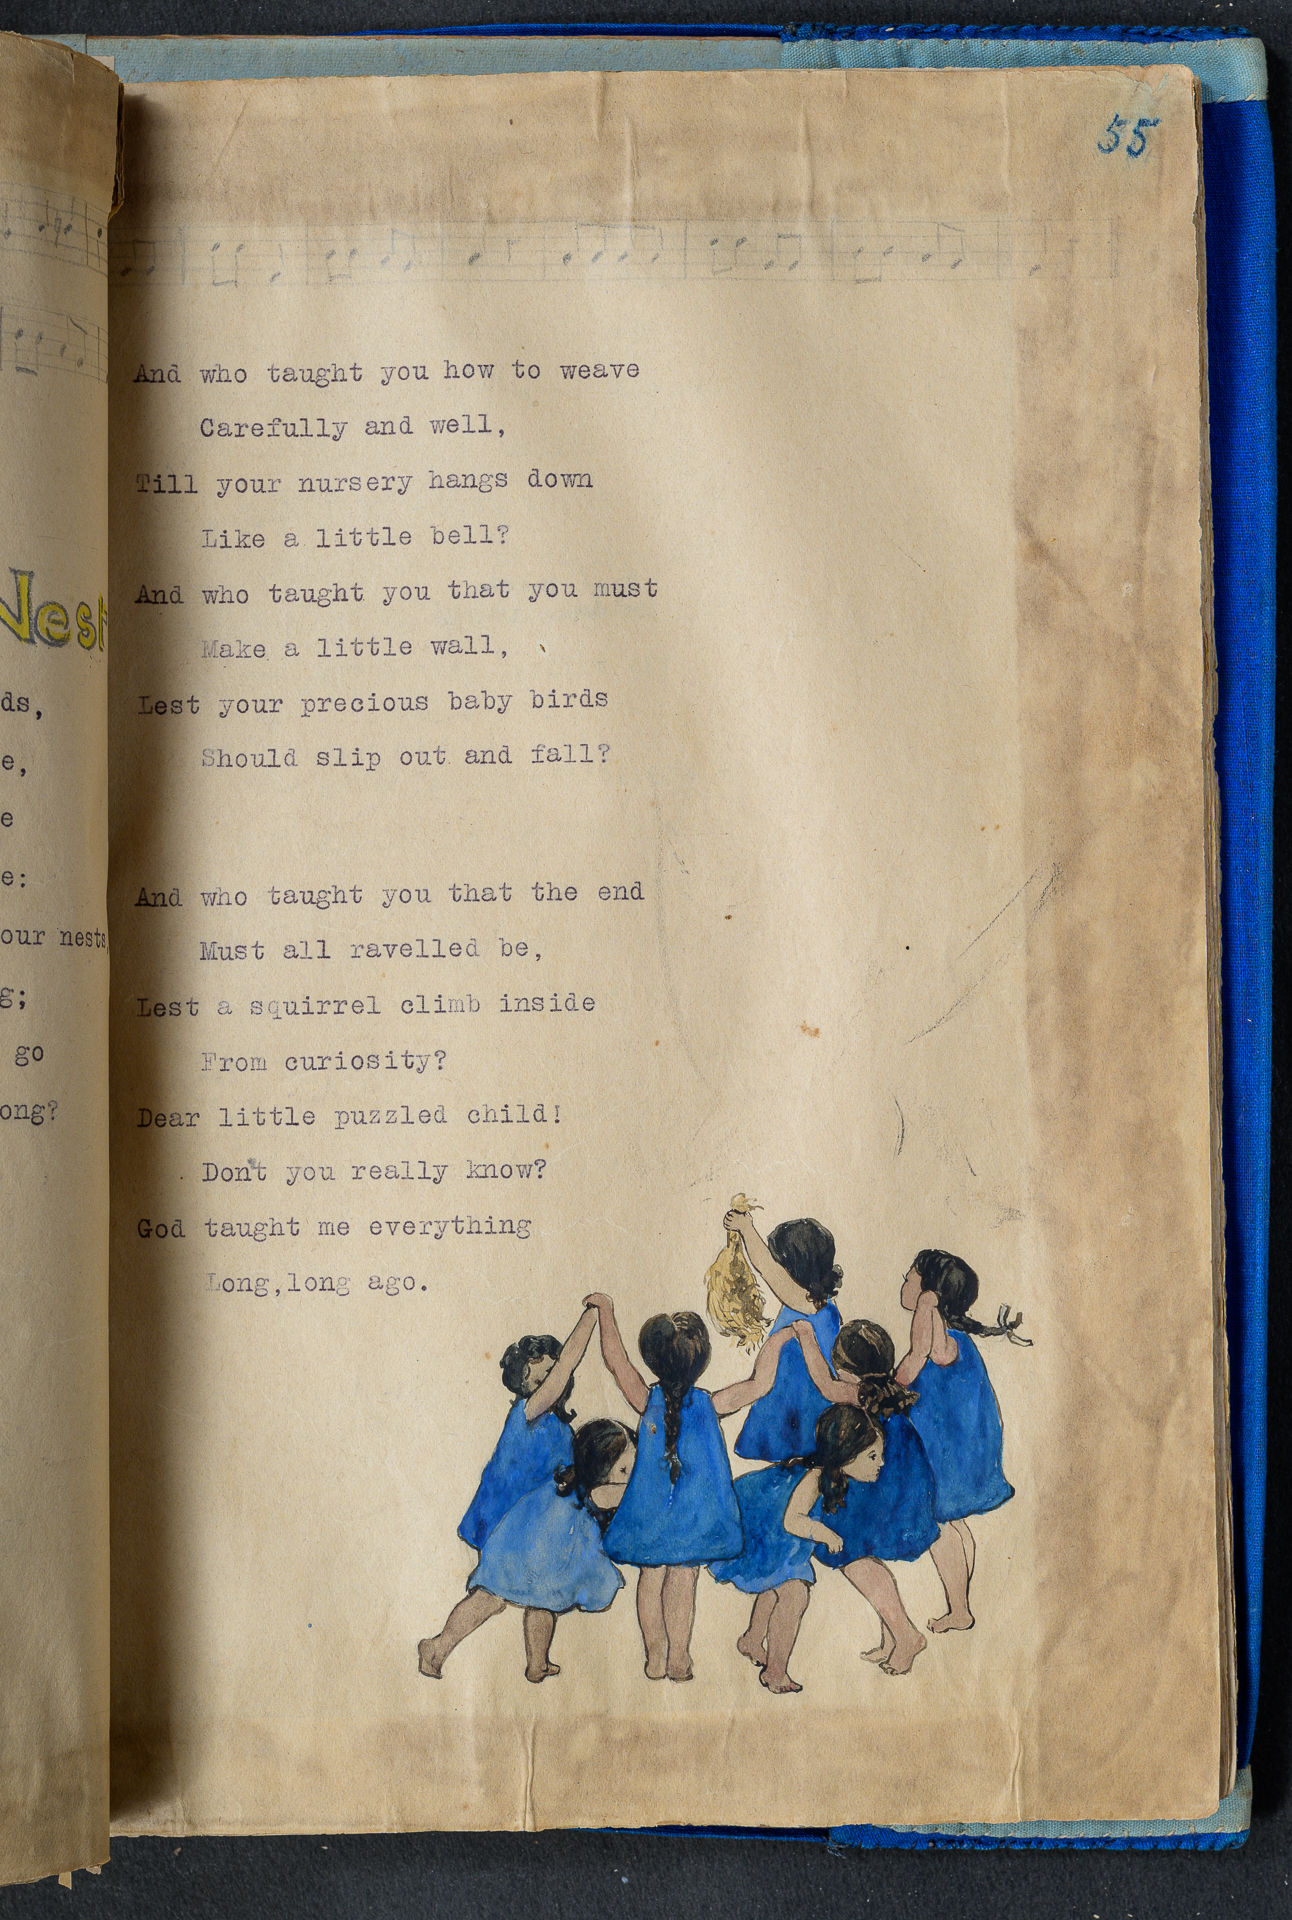 55
Nest
ds,
e,
e
e:
our nests,
g;
go
ong?
And who taught you how to weave
Carefully and well,
Till your nursery hangs down
Like a little bell?
And who taught you that you must
Make a little wall,
Lest your precious baby birds
Should slip out and fall?
And who taught you that the end
Must all ravelled be,
Lest a squirrel climb inside
From curiosity?
Dear little puzzled child!
Don't you really know?
God taught me everything
Long,long ago.